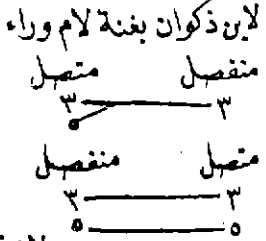 لابن ذكوان بغنة لام وراء
منفصل متصل
٣ ٣
٥
متصل منفصل
٣ ٣
٥ ٥